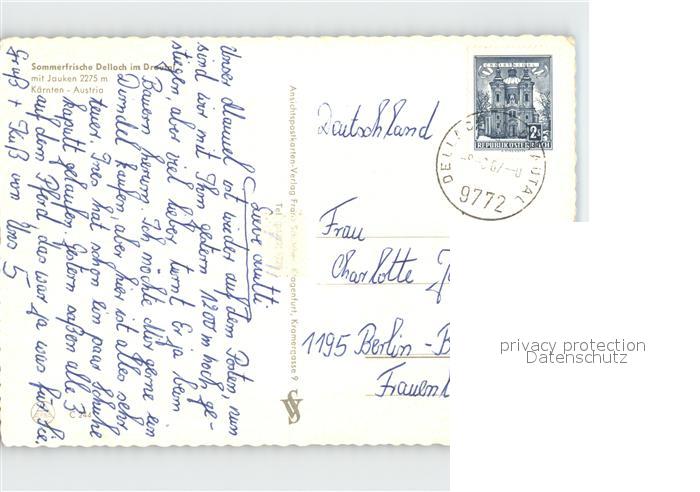 Sommerfrische Dellach im Drautal
mit Jauken 2275 m
Kärnten - Austria
Liebe Mutti
Unser Manuel ist wieder auf dem Posten, nun
sind wir mit Ihm gestern 1200 m hoch ge-
stiegen, aber viel lieber turnt Er ja beim
Bauern herum. Ich möchte mir gerne ein
Dirndel kaufen, aber hier ist alles sehr
teuer. Ines hat schon ein paar Schuhe
kaputt gelaufen. Gestern saßen alle 3
auf dem Pferd, das war ja was für Sie.
Gruß + Kuß von Uns 5
C 244
Ansichtspostkarten-Verlag Franz Klagenfurt, Kramergasse 9
Tel.
CHRISTKINDL
2 S
REPUBLIK ÖSTERREICH
DELLACH DRAUTAL
9772
Deutschland
Frau
Charlotte
1195 Berlin - B
Frauen
privacy protection
Datenschutz